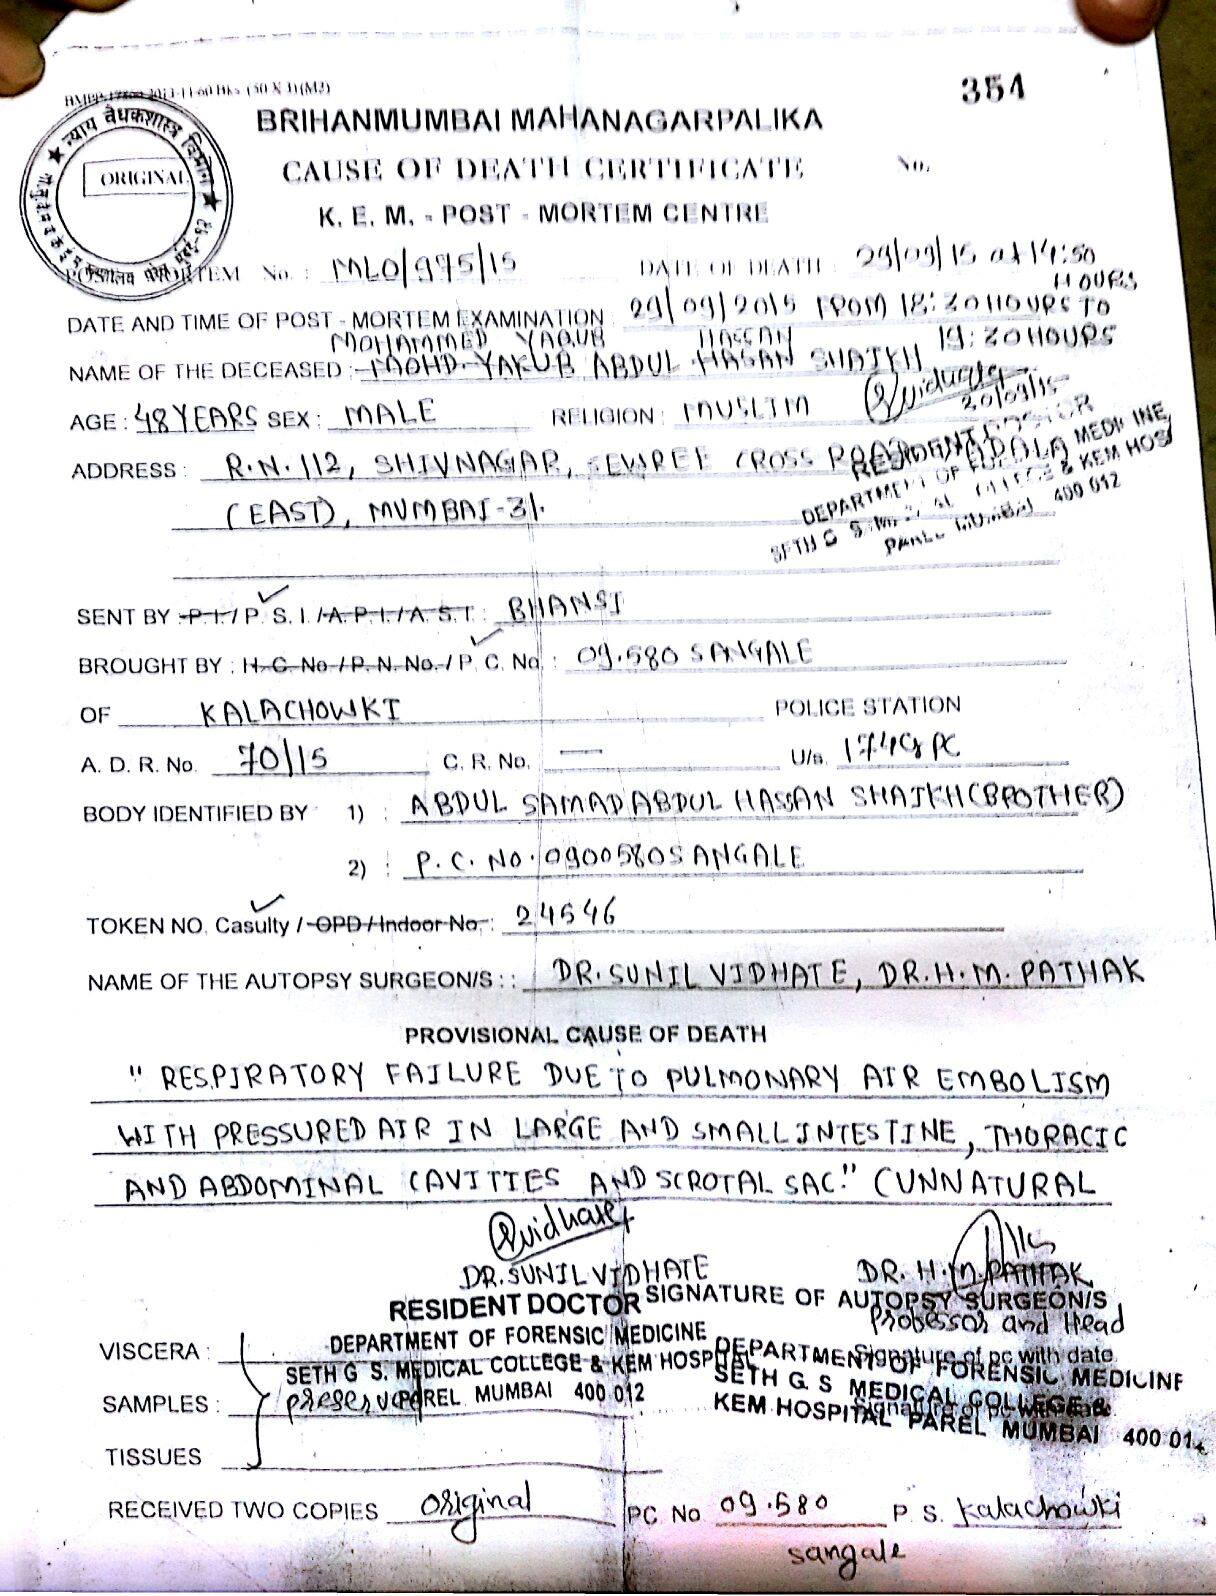 354
BRIHANMUMBAI MAHANAGARPALIKA
CAUSE OF DEATH CERTIFICATE No.
ORIGINAL
K. E. M. - POST - MORTEM CENTRE
No. : MLO/975/15 DATE OF DEATH : 29/09/15 at 14:50 HOURS
DATE AND TIME OF POST - MORTEM EXAMINATION 29/09/2015 FROM 18:20 HOURS TO 19:20 HOURS
MOHAMMED YAQUB HASSAN
NAME OF THE DECEASED : MOHD. YAKUB ABDUL HASAN SHAIKH
AGE : 48 YEARS SEX : MALE RELIGION : MUSLIM
ADDRESS : R.N. 112, SHIVNAGAR, SEWREE CROSS ROAD
(EAST), MUMBAI-31.
SENT BY P.I. / P. S. I. / A. P. I. / A. S. I. : BHANSI
BROUGHT BY : H. C. No / P. N. No. / P. C. No. : 09.580 SANGALE
OF KALACHOWKI POLICE STATION
A. D. R. No. 70/15 C. R. No. — U/s. 174 CrPC
BODY IDENTIFIED BY 1) : ABDUL SAMAD ABDUL HASSAN SHAIKH (BROTHER)
2) : P.C. NO. 090580 SANGALE
TOKEN NO. Casulty / OPD / Indoor No. : 24546
NAME OF THE AUTOPSY SURGEON/S : : DR. SUNIL VIDHATE, DR. H. M. PATHAK
PROVISIONAL CAUSE OF DEATH
" RESPIRATORY FAILURE DUE TO PULMONARY AIR EMBOLISM
WITH PRESSURED AIR IN LARGE AND SMALL INTESTINE, THORACIC
AND ABDOMINAL CAVITIES AND SCROTAL SAC." (UNNATURAL
DR. SUNIL VIDHATE DR. H. M. PATHAK
RESIDENT DOCTOR SIGNATURE OF AUTOPSY SURGEON/S
Professor and Head
VISCERA : DEPARTMENT OF FORENSIC MEDICINE Signature of pc with date
SETH G S. MEDICAL COLLEGE & KEM HOSPITAL DEPARTMENT OF FORENSIC MEDICINE
SAMPLES : preserved PAREL MUMBAI 400 012 SETH G. S MEDICAL COLLEGE &
KEM HOSPITAL PAREL MUMBAI 400 012
TISSUES
RECEIVED TWO COPIES original PC No 09.580 P. S. Kalachowki
sangale